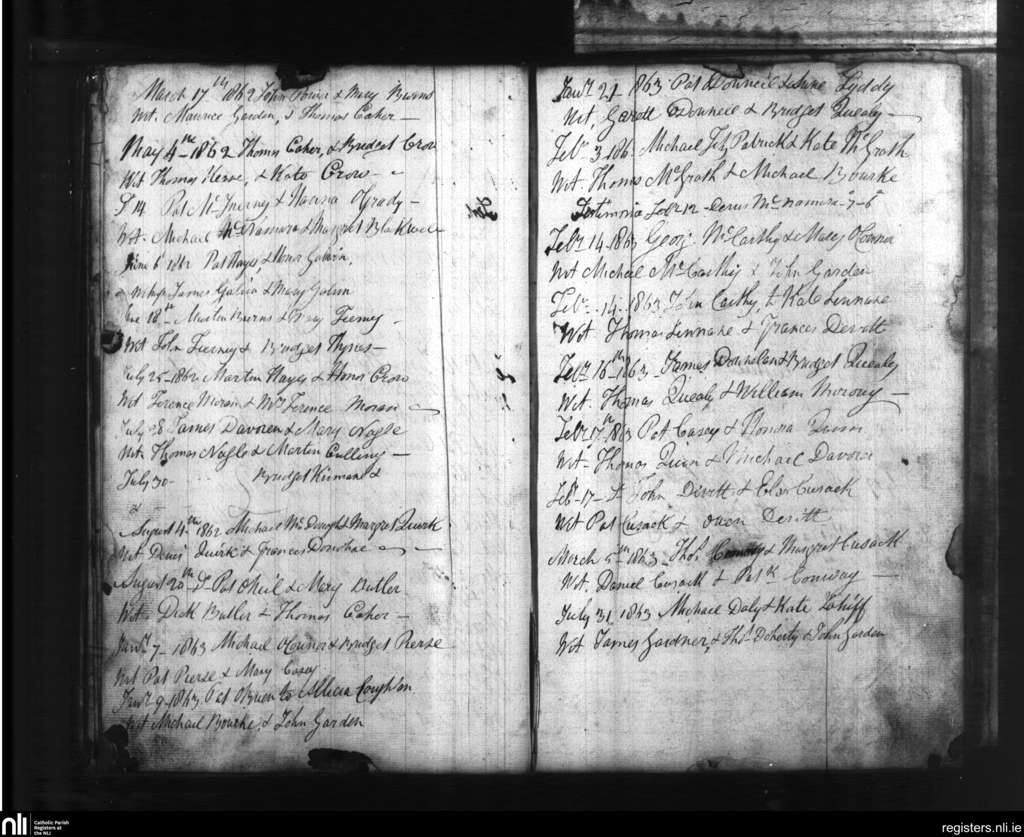 March 17th 1862 John Power & Mary Burns
Wit. Maurice Garden, & Thomas Caher —
May 4th 1862 Thomas Caher, & Bridget Crow
Wit Thomas Hesse, & Kate Crow —
14 Pat McInerny & Hanora OGrady —
Wit. Michael McNamara & Margret Blackwell
June 6th 1862 Pat Hayes, & Honor Galvin,
James Galvin & Mary Galvin
June 18th — Martin Burns & Mary Tierney —
Wit John Tierney & Bridget Hynes —
July 25 — 1862 Martin Hayes & Honor Crow
Wit Terence Moran & Mrs Terence Moran —
July 28 James Davoren & Mary Nagle
Wit Thomas Nagle & Martin —
July 30 — Bridget &
August 4th 1862 Michael McDonogh & Margret Quirk
Wit Denis Quirk & Frances Donohoe —
August 20th — Pat ONeil & Mary Butler
Wit Dick Butler & Thomas Caher —
Janry 7 — 1863 Michael OConnor & Bridget Pierse
Wit Pat Pierse & Mary Casey
Janry 9 — 1863 Pat OBrien to Allicia Coughlan
Wit Michael Bourke, & John Garden
Janry 21 — 1863 Pat ODonnell & Jane Lyddy
Wit, Garett ODonnell & Bridget Quealy —
Febry 3 — 186 Michael Fitz Patrick & Kate McGrath
Wit. Thomas McGrath & Michael Bourke
Testimonia Febry 12 — Denis McNamara — 7 — 6
Febry 14 — 1863 George McCarthy & Mary OConnor
Wit Micheal McCarthy & John Garden
Febry — 14 — 1863 John Carthy, to Kate Lennane
Wit Thomas Lennane & Frances Devitt
Febry 16th 1863 — James Donnelan & Bridget Quealy
Wit. Thomas Quealy & William Morony —
Febry 17th 1863 Pat Casey & Honora Quin
Wit — Thomas Quin & Michael Davoren
Febry — 17 — John Divitt & Elen Cusack
Wit Pat Cusack & Owen Devitt
March 5th 1863 — Thos Conway & Margret Cusack
Wit. Daniel Cusack & Patk Conway —
July 31 1863 Michael Daly & Kate Lahiff
Wit James Gardner, & Thos Doherty & John Garden
nli
Catholic Parish
Registers at
the NLI
registers.nli.ie